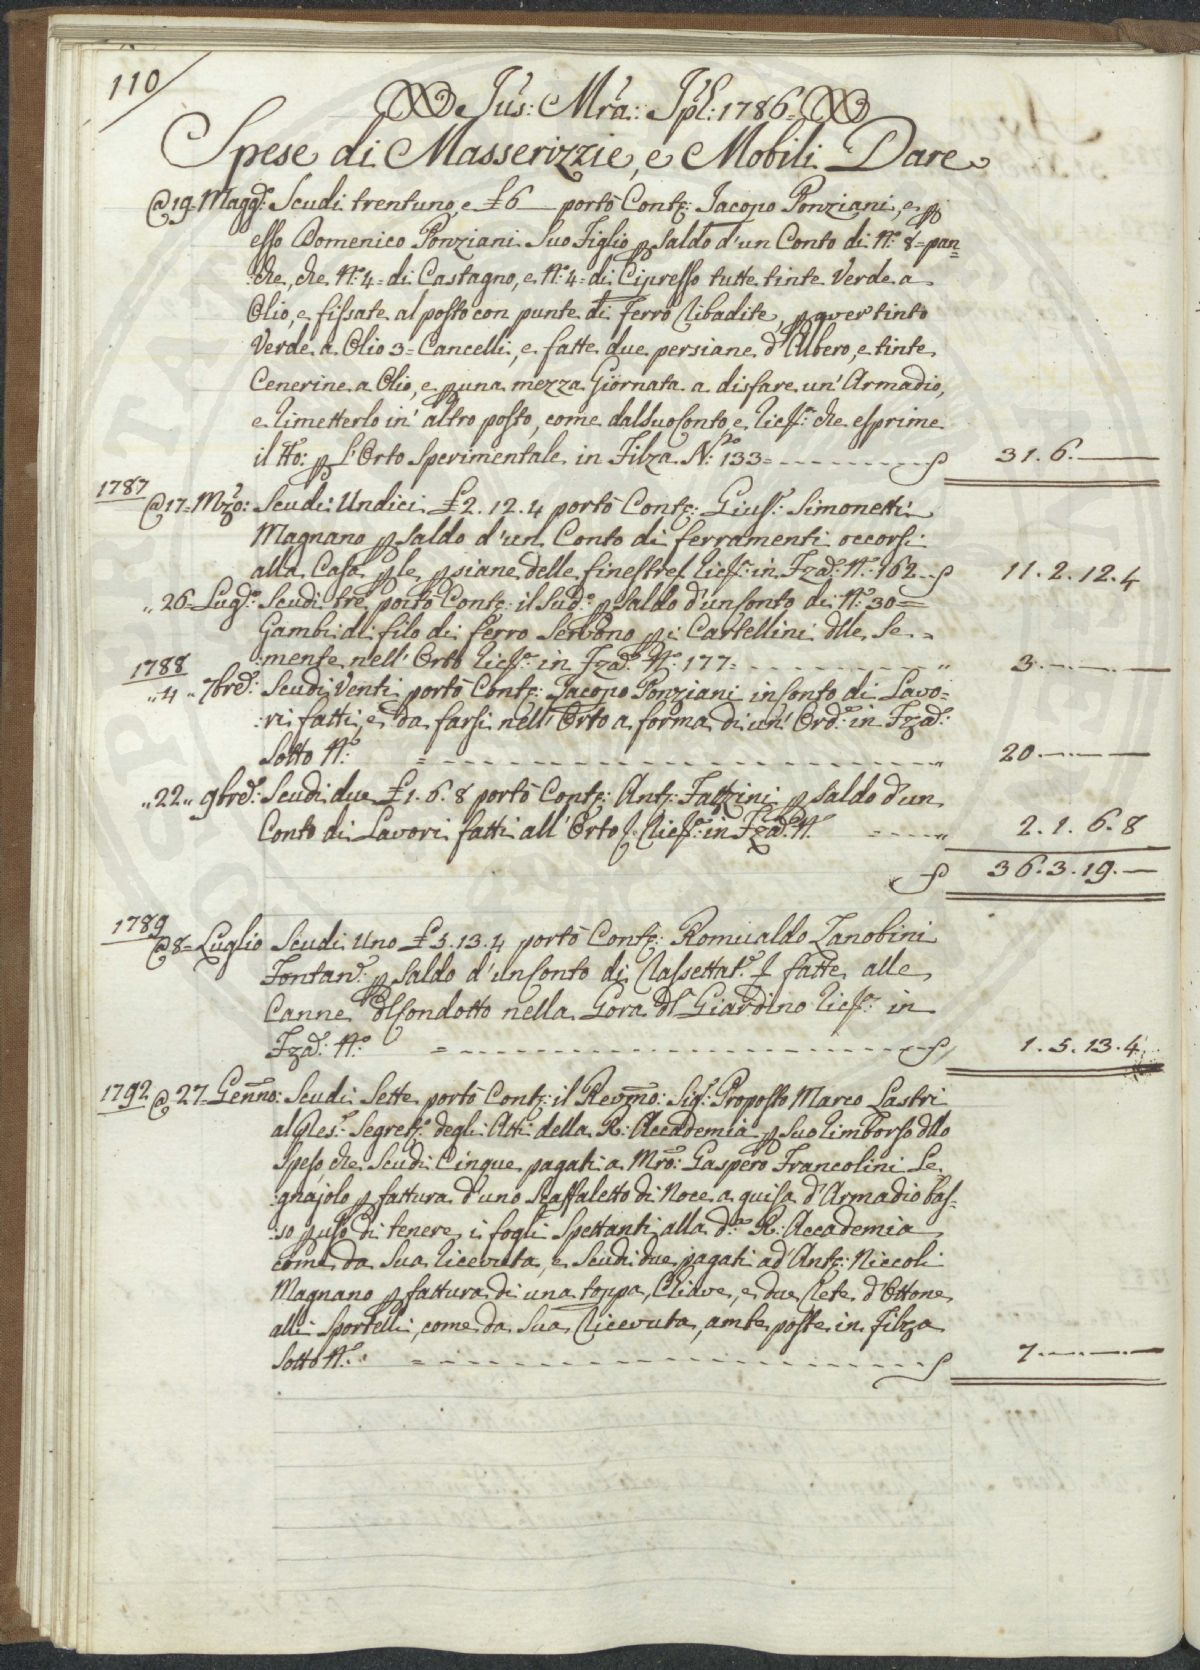 110
Jus: Mra: Jpl: 1786=
Spese di Masserizzie, e Mobili Dare
@ 19 Magg.o: Scudi trentuno, e £6 — portò Conti: Jacopo Ponziani, e p
esso Domenico Ponziani Suo Figlio p saldo d'un Conto di N.o 8=pan=
:che, che N.o 4= di Castagno, e N.o 4= di Cipresso tutte tinte Verde a
Olio, e fissate al posto con punte di ferro ribadite, p aver tinto
Verde a Olio 3= Cancelli, e fatte due persiane d'Albero, e tinte
Cenerine a Olio, e p una mezza Giornata a disfare un'Armadio,
e rimetterlo in' altro posto, come dal suo Conto, e ric: che esprime
il tto: p L'Orto Sperimentale in Filza N.o 133= - - - - 31. 6. —
1787
@ 17= Mzo: Scudi Undici £2. 12. 4 portò Conti: Gius: Simonetti
Magnano p saldo d'un Conto di ferramenti occorsi
alla Casa p le psiane delle finestre ric: in Fza: N.o 162 - 11. 2. 12. 4
„ 26= Lug.o: Scudi tre portò Conti: il Sud.o p saldo d'un Conto di N.o 30=
Gambi di filo di ferro servono p i Cartellini dlle Se=
:mente nell'Orto ric: in Fza: N.o 177= - - - - „ 3. — . —
1788
„ 4 „ 7bre: Scudi Venti portò Conti: Jacopo Ponziani in Conto di Lavo=
:ri fatti, e da farsi nell'Orto a forma di un' Ord.e in Fza:
Sotto N.o = - - - - „ 20 — . —
„ 22 „ 9bre: Scudi due £1. 6. 8 portò Conti: Ant: Fabbrini p saldo d'un
Conto di Lavori fatti all'Orto ric: in Fza: N.o = - - - „ 2. 1. 6. 8
36. 3. 19. —
1789
@ 8= Luglio Scudi Uno £5. 13. 4 portò Conti: Romualdo Zanobini
Fontan.e: p saldo d'un Conto di Rassettat.e fatte alle
Canne dl Condotto nella Gora dl Giardino ric: in
Fza: N.o = - - - - 1. 5. 13. 4
1792 @ 27= Genno: Scudi Sette portò Conti: il Revmo: Sig: Proposto Marco Lastri
al Segret: degli Atti della R: Accademia p suo rimborso dlle
Spese, che Scudi Cinque pagati a Mro: Gaspero Francolini Le=
:gnajolo p fattura d'uno Scaffaletto di Noce a guisa d'Armadio bas=
:so p uso di tenere i fogli Spettanti alla d.a R: Accademia
come da sua ricevuta, e Scudi due pagati ad Ant: Niccoli
Magnano p fattura di una toppa, Chiave, e due Rete d'Ottone
alli Sportelli, come da sua ricevuta, ambe poste in filza
Sotto N.o: = - - - - 7. — . —